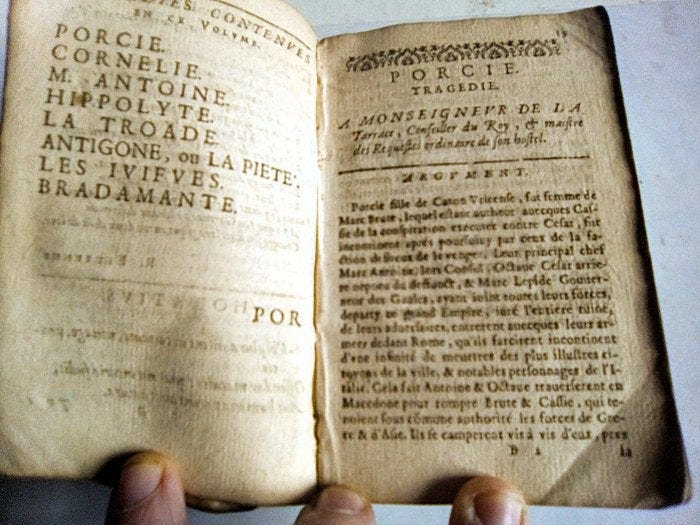 CONTENVES
EN CE VOLVME.
PORCIE.
CORNELIE.
M. ANTOINE.
HIPPOLYTE.
LA TROADE.
ANTIGONE, ou LA PIETE'.
LES IVIFVES.
BRADAMANTE.
POR
PORCIE.
TRAGEDIE.
A MONSEIGNEVR DE LA
Terrace, Conseiller du Roy, & maistre
des Requestes ordinaire de son hostel.
ARGVMENT.
Porcie fille de Caton Vticense, fut femme de
Marc Brute, lequel estant autheur auecques Cas-
sie de la conspiration executee contre Cesar, fut
incontinent apres poursuiuy par ceux de la fa-
ction desireux de le venger. Leur principal chef
Marc Antoine, lors Consul, Octaue Cesar arrie-
re nepueu du deffunct, & Marc Lepide Gouuer-
neur des Gaules, ayant ioint toutes leurs forces,
departy ce grand Empire, iuré l'entiere ruine,
de leurs aduersaires, entrerent auecques leurs ar-
mees dedans Rome, qu'ils farcirent incontinent
d'vne infinité de meurtres des plus illustres ci-
toyens de la ville, & notables personnages de l'I-
talie. Cela fait Antoine & Octaue trauerserent en
Macedone pour rompre Brute & Cassie, qui te-
noient sous cõmune authorité les forces de Gre-
ce & d'Asie. Ils se camperent vis à vis d'eux, pres
la